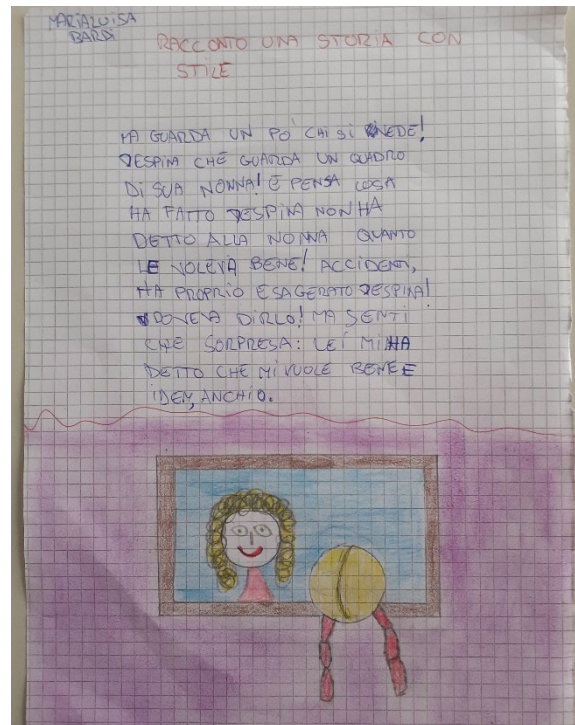 MARIALUISA
BARDI
RACCONTO UNA STORIA CON
STILE
MA GUARDA UN PO' CHI SI VEDE!
DESPINA CHE GUARDA UN QUADRO
DI SUA NONNA! E PENSA COSA
HA FATTO DESPINA NON HA
DETTO ALLA NONNA QUANTO
LE VOLEVA BENE! ACCIDENTI,
HA PROPRIO ESAGERATO DESPINA!
DOVEVA DIRLO! MA SENTI
CHE SORPRESA: LEI MI HA
DETTO CHE MI VUOLE BENE E
IDEM, ANCHIO.